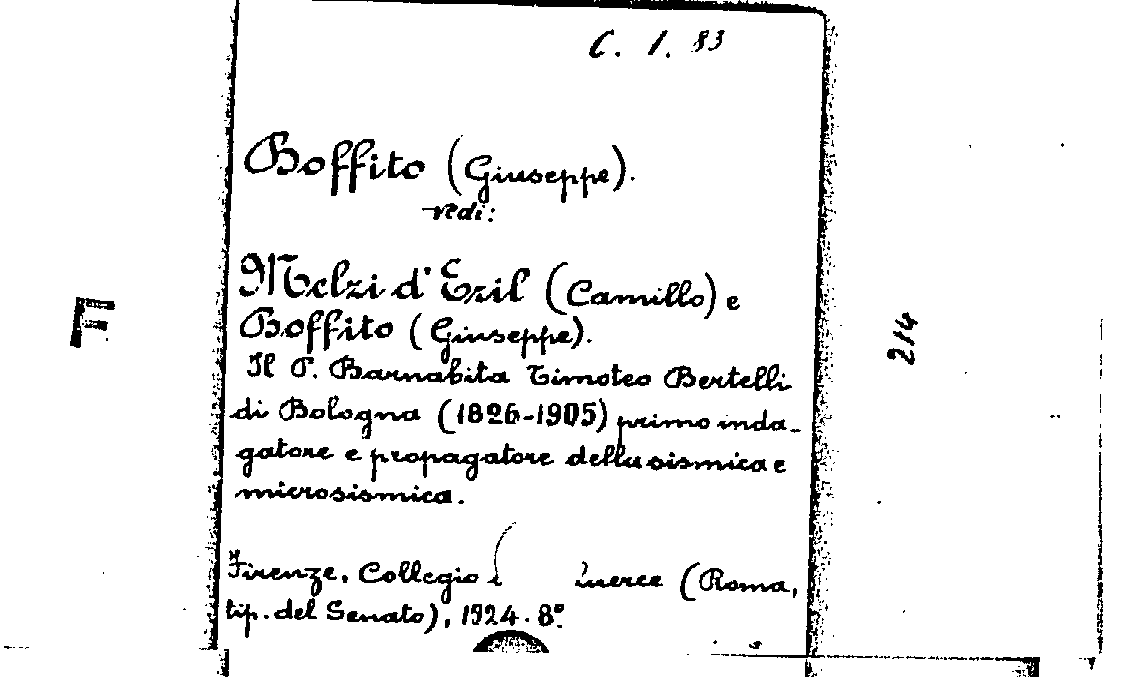 C. 1. 83
Boffito (Giuseppe).
vedi:
Melzi d'Eril (Camillo) e
Boffito (Giuseppe).
Il P. Barnabita Timoteo Bertelli
di Bologna (1826-1905) primo inda-
gatore e propagatore della sismica e
microsismica.
Firenze, Collegio
(Roma,
tip. del Senato), 1924. 8º.
F
214